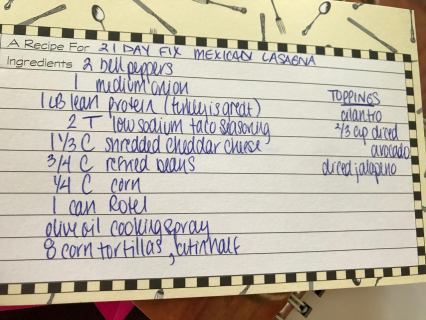 A Recipe For 21 DAY FIX MEXICAN LASAGNA
Ingredients 2 bell peppers
1 medium onion
1 LB lean protein (turkey is great)
2 T low sodium taco seasoning
1 1/3 C shredded cheddar cheese
3/4 C refried beans
1/4 C corn
1 can Rotel
olive oil cooking spray
8 corn tortillas, cut in half
TOPPINGS
cilantro
2/3 cup diced
avocado
diced jalapeno